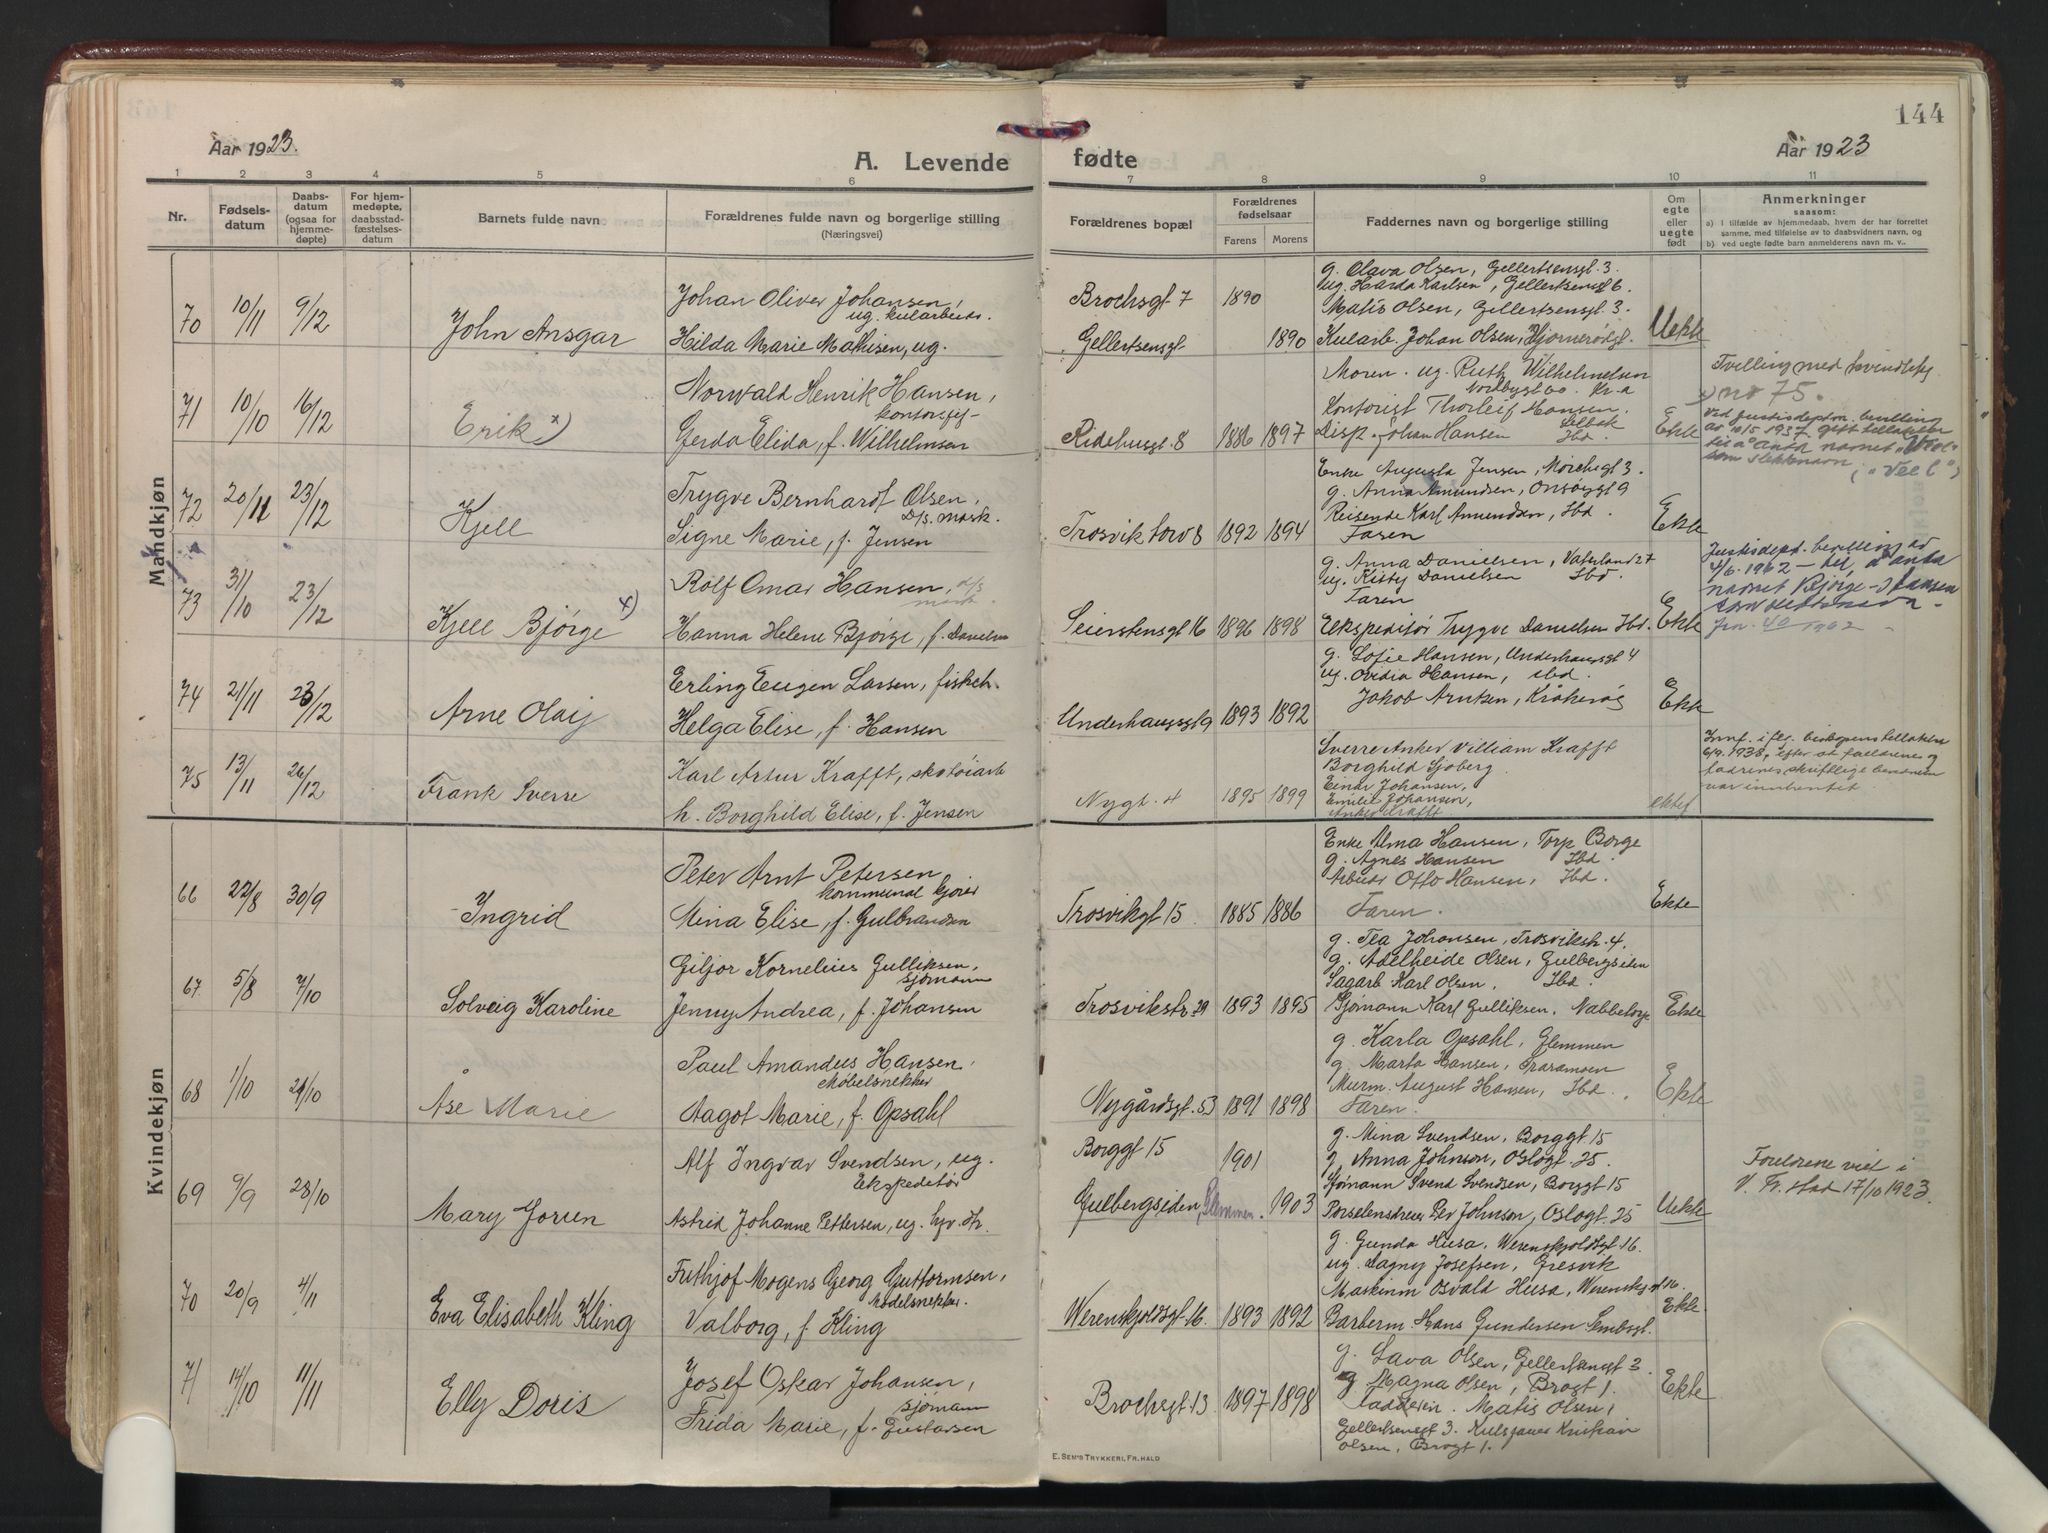 144
Aar 1923.
A. Levende
fødte
Aar 1923
1 2 3 4 5 6 7 8 9 10 11
Nr.
Fødsels-
datum
Daabs-
datum
(ogsaa for
hjemme-
døpte)
For hjem-
medøpte,
daabsstad-
fæstelses-
datum
Barnets fulde navn
Forældrenes fulde navn og borgerlige stilling
(Næringsvei)
Forældrenes bopæl
Forældrenes
fødselsaar
Farens Morens
Faddernes navn og borgerlige stilling
Om
egte
eller
uegte
født
Anmerkninger
saasom:
a) i tilfælde av hjemmedaab, hvem der har forrettet
samme, med tilføielse av to daabsvidners navn, og
b) ved uegte fødte barn anmelderens navn m. v..
Mandkjøn
70 10/11 9/12 John Ansgar
Johan Oliver Johansen,
ug. kularbeid.
Hilda Marie Mathisen, ug.
Brochsgt 7 1890
Gellertsensgt 1890
g. Olava Olsen, Gellertsensgt. 3.
ug. Harda Karlsen, Gellertsensgt 6.
Matis Olsen, Gellertsensgt 3.
Kularb. Johan Olsen, Bjørnerødgt.
Uekte
71 10/10 16/12 Erik x)
Norvald Henrik Hansen,
kontorsjef
Gerda Elida, f. Wilhelmsen
Ridehusgt. 8 1886 1897
Moren. ug. Ruth Wilhelmsen
Nordbygt 60. Kr.a
Kontorist Thorleif Hansen.
Selbak
Disp. Johan Hansen Ibd.
Ekte
Tvilling med kvindekj.
no 75.
x) Ved Justisdeptm. bevilling
av 10/5 1937 gitt tillatelse
til å anta navnet "Veel"
som slektsnavn ("Veel")
72 20/11 23/12 Kjell
Trygve Bernhardt Olsen,
D/s. mask.
Signe Marie, f. Jensen
Trosvik torv 8 1892 1894
Enke Augusta Jensen, Mørchsgt 3.
g. Anna Amundsen, Onsøygt 9
Reisende Karl Amundsen, Ibd.
Faren
Ekte
73 31/10 23/12 Kjell Bjørge x)
Rolf Omar Hansen, d/s
mask.
Hanna Helene Bjørge, f. Danielsen
Seierstensgt 16 1896 1898
g. Anna Danielsen, Vaterland 27
ug. Kitty Danielsen Ibd
Faren
Ekspeditør Trygve Danielsen Ibd.
Ekte
Justisdept. bevilling av
4/6. 1962 – til å anta
navnet Bjørge-Hansen
som slektsnavn.
Jrn. 40/1962
74 21/11 23/12 Arne Olaf
Erling Eugen Larsen, fiskeh.
Helga Elise, f. Hansen
Underhaugsgt 9 1893 1892
g. Sofie Hansen, Underhaugsgt 4
ug. Ovidia Hansen, ibd.
Jakob Arntsen, Kråkerøy
Ekte
75 13/11 26/12 Frank Sverre
Karl Artur Krafft, skotøiarb
h. Borghild Elise, f. Jensen
Nygt. 4 1895 1899
Sverre Anker Villiam Krafft
Borghild Sjøberg
Einar Johansen,
Emilie Johansen,
Anker Krafft
ektef
Innf. i flg. biskopens tillatelse
6/9. 1938, efter at foreldrenes og
fadrenes skriftlige bevidnelse
var innhentet.
Kvindekjøn
66 22/8 30/9 Ingrid
Peter Arnt Petersen
kommunal kjører
Mina Elise, f. Gulbrandsen
Trosvikgt 15 1885 1886
Enke Alma Hansen, Torp Borge
g. Agnes Hansen Ibd.
Arbeider Otto Hansen, Ibd.
Faren.
Ekte
67. 5/8 7/10 Solveig Karoline
Giljor Kornelius Gulliksen,
sjømann
Jenny Andrea, f. Johansen
Trosvikstr. 29 1893 1895
g. Tea Johansen, Trosvikstr. 4.
g. Adelheide Olsen, Gulbergsiden
Sagarb Karl Olsen, Ibd.
Sjømann Karl Gulliksen, Nabbetorp
Ekte
68 1/10 21/10 Åse Marie
Paul Amandus Hansen,
Møbelsnekker
Aagot Marie, f. Opsahl
Nygårdsgt. 53 1891 1898
g. Karla Opsahl, Glemmen
g. Marta Hansen, Praramoen
Murm. August Hansen, Ibd.
Faren.
Ekte
69 9/9 28/10 Mary Jorun
Alf Ingvar Svendsen, ug.
Ekspeditør
Astrid Johanne Pettersen, ug. hjv. Hr.
Borggt 15 1901
Gulbergsiden, Glemmen. 1903
g. Mina Svendsen, Borggt. 15
g. Anna Johnson, Oslogt. 25.
Sjømann Svend Svendsen, Borggt 15
Porselensdreier Per Johnson, Oslogt. 25
Uekte
Foreldrene viet i
V. Fr.stad 17/10 1923.
70 20/9 4/11 Eva Elisabeth Kling
Frithjof Mogens Georg Guttormsen,
Modelsnekker.
Valborg, f. Kling
Werenskjoldsgt. 16. 1893 1892
g. Gunda Husa, Werenskjoldsgt 16.
ug. Dagny Josefsen, Gresvik
Maskinm Osvald Husa, Werenskj.gt 16.
Barberm. Hans Gundersen Sembsgt.
Ekte
71 14/10 11/11 Elly Doris
Josef Oskar Johansen,
sjømann
Frida Marie, f. Gustavsen
Brochsgt 13 1897 1898
g. Lava Olsen, Gellertsensgt 3
g. Magna Olsen, Brogt 1.
Fadderen. Matis Olsen,
Gellertsensgt 3. Kulsjauer Kristian
Olsen, Brogt 1.
Ekte
E. SEM'S TRYKKERI, FR.HALD